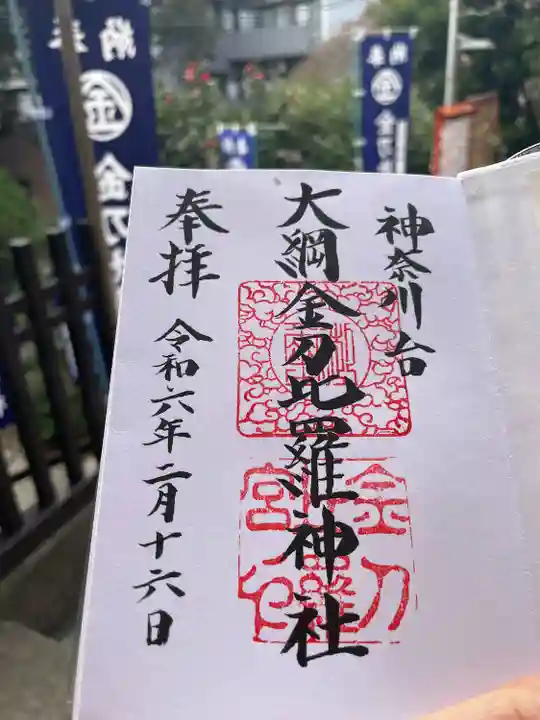 神奈川台
大綱金刀比羅神社
奉拝
令和六年二月十六日
金刀
宮
奉
納
金
金刀
奉
金
金刀